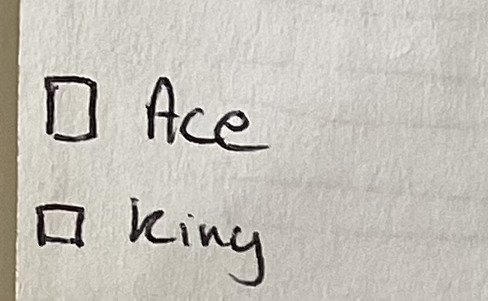 ☐ Ace
☐ King